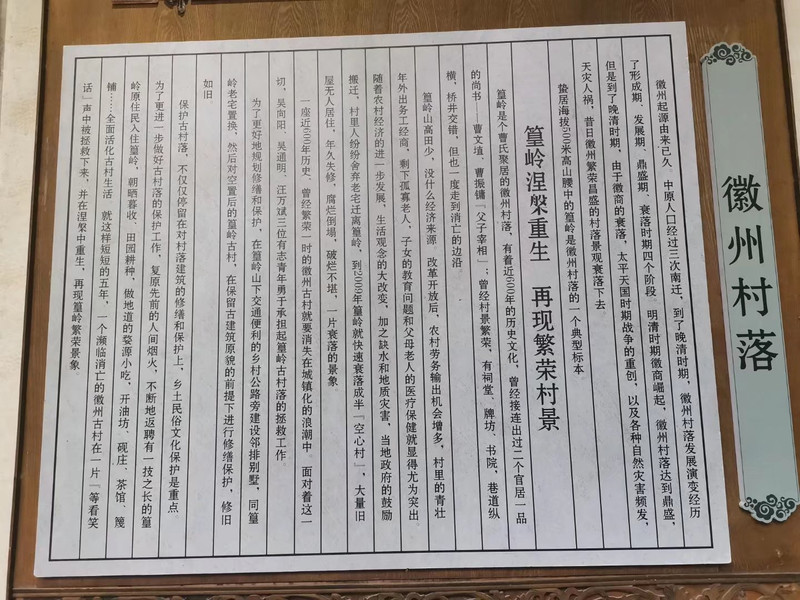 徽州村落
徽州起源由来已久，中原人口经过三次南迁，到了晚清时期，徽州村落发展演变经历
了形成期、发展期、鼎盛期、衰落时期四个阶段，明清时期徽商崛起，徽州村落达到鼎盛，
但是到了晚清时期，由于徽商的衰落，太平天国时期战争的重创，以及各种自然灾害频发，
天灾人祸，昔日徽州繁荣昌盛的村落景观衰落下去
蛰居海拔500米高山腰中的篁岭是徽州村落的一个典型标本
篁岭涅槃重生 再现繁荣村景
篁岭是个曹氏聚居的徽州村落，有着近600年的历史文化，曾经接连出过二个官居一品
的尚书——曹文埴、曹振镛『父子宰相』；曾经村景繁荣，有祠堂、牌坊、书院，巷道纵
横，桥井交错，但也一度走到消亡的边沿
篁岭山高田少，没什么经济来源，改革开放后，农村劳务输出机会增多，村里的青壮
年外出务工经商，剩下孤寡老人，子女的教育问题和父母老人的医疗保健就显得尤为突出
随着农村经济的进一步发展，生活观念的大改变，加之缺水和地质灾害，当地政府的鼓励
搬迁，村里人纷纷舍弃老宅迁离篁岭，到2009年篁岭就快速衰落成半『空心村』，大量旧
屋无人居住，年久失修，腐烂倒塌，破烂不堪，一片衰落的景象
一座近600年历史、曾经繁荣一时的徽州古村就要消失在城镇化的浪潮中。面对着这一
切，吴向阳、吴通明、汪万斌三位有志青年勇于承担起篁岭古村落的拯救工作
为了更好地规划修缮和保护，在篁岭山下交通便利的乡村公路旁建设邻排别墅，同篁
岭老宅置换，然后对空置后的篁岭古村，在保留古建筑原貌的前提下进行修缮保护，修旧
如旧
保护古村落，不仅仅停留在对村落建筑的修缮和保护上，乡土民俗文化保护是重点
为了更进一步做好古村落的保护工作，复原先前的人间烟火，不断地返聘有一技之长的篁
岭原住民入住篁岭，朝晒暮收、田园耕种，做地道的婺源小吃，开油坊、砚庄、茶馆、篾
铺……全面活化古村生活 就这样短短的五年，一个濒临消亡的徽州古村在一片『等看笑
话』声中被拯救下来，并在涅槃中重生，再现篁岭繁荣景象